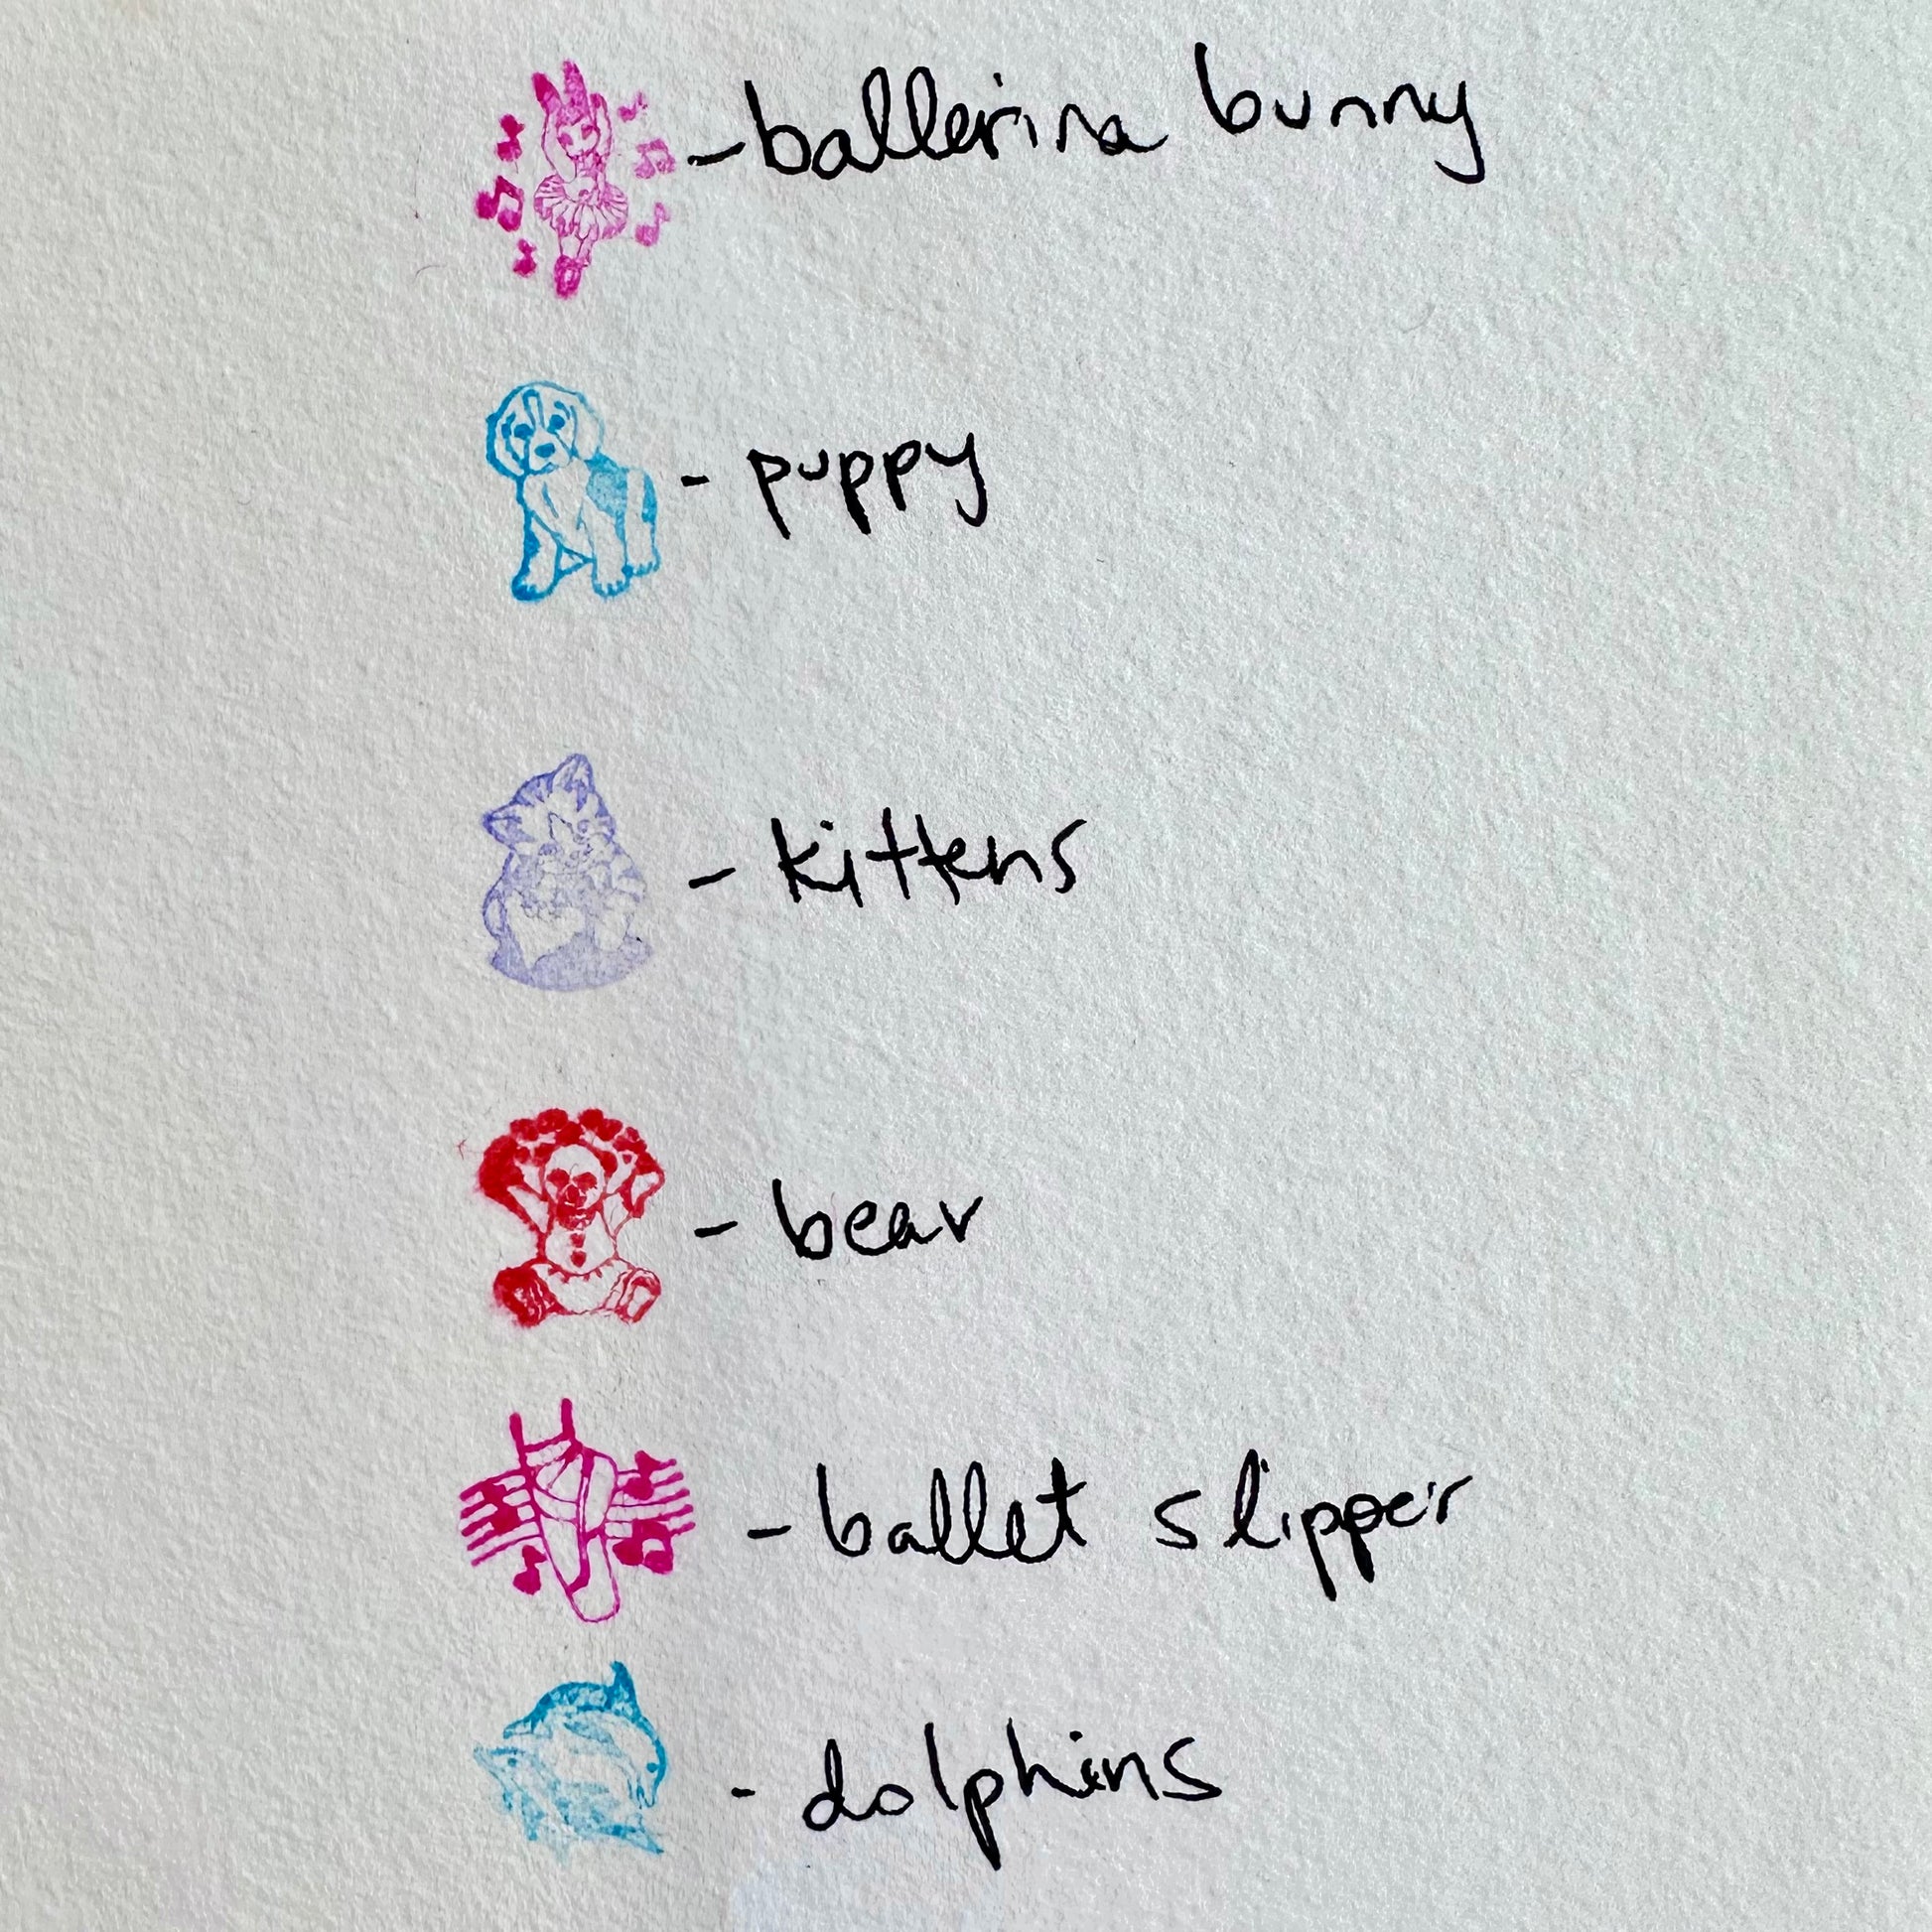 - ballerina bunny
- puppy
- kittens
- bear
- ballet slipper
- dolphins